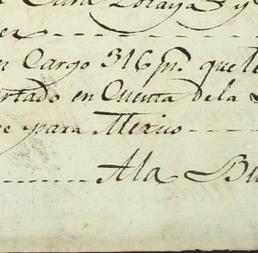 Cura Lozaya y
n Cargo 316 p.s que le
ortado en Cuenta de la
e para Mexico
Ala Bu